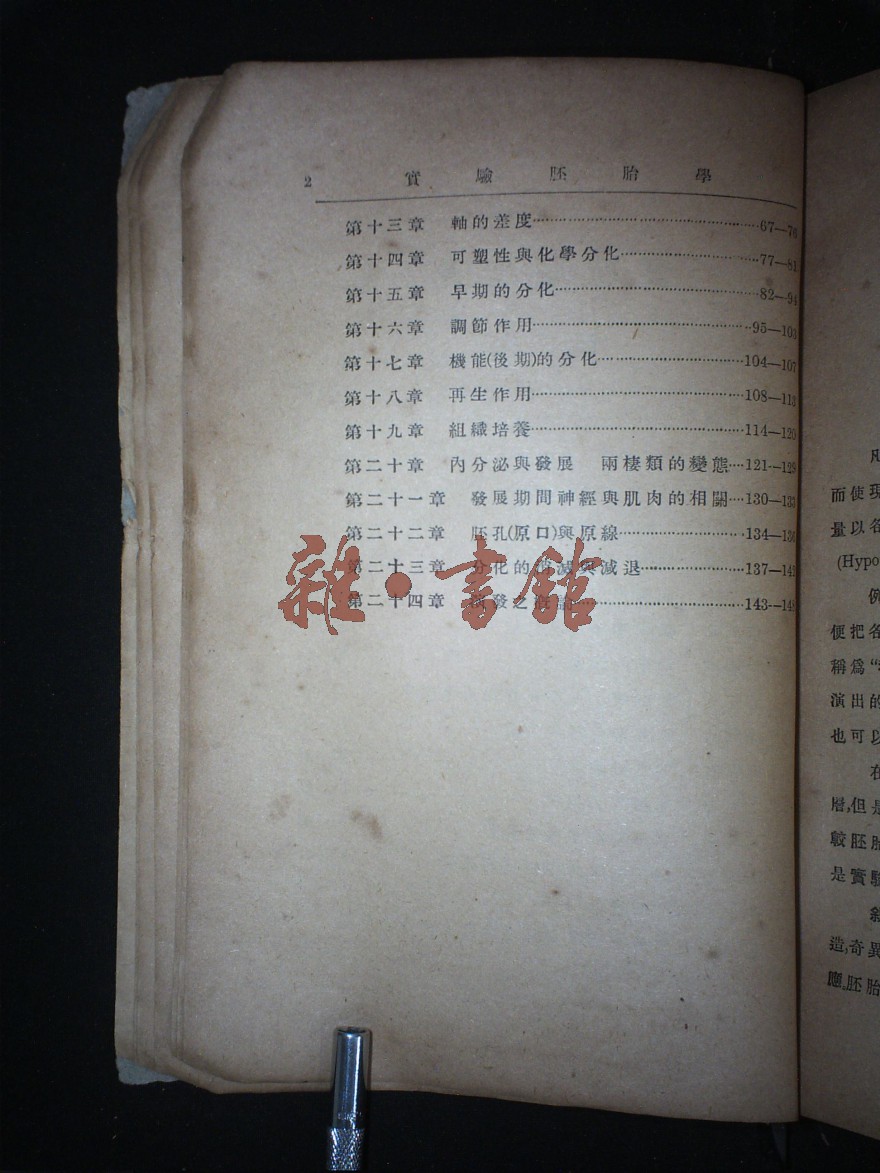 2 實驗胚胎學
第十三章 軸的差度……67—76
第十四章 可塑性與化學分化……77—81
第十五章 早期的分化……82—94
第十六章 調節作用……95—103
第十七章 機能(後期)的分化……104—107
第十八章 再生作用……108—113
第十九章 組織培養……114—120
第二十章 內分泌與發展 兩棲類的變態…121—129
第二十一章 發展期間神經與肌肉的相關…130—133
第二十二章 胚孔(原口)與原線……134—136
第二十三章 分化的消滅與減退……137—142
第二十四章 ……143—14
雜·書館
凡
而使現
量以各
(Hypo
例
便把各
稱爲“
演出的
也可以
在
層,但是
較胚胎
是實驗
造,奇異
應。胚胎